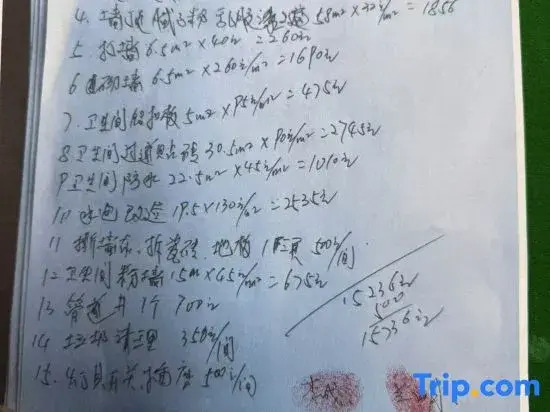 4. 墙顶腻子粉 乳胶漆 58m² × 32元/m² = 1856
5. 打墙 6.5m² × 40元 = 260元
6 砌墙 6.5m² × 260元/m² = 1690元
7. 卫生间铝扣板 5m² × 95元/m² = 475元
8. 卫生间过道贴砖 30.5m² × 90元/m² = 2745元
9 卫生间防水 22.5m² × 45元/m² = 1010元
10 水电改造 19.5 × 130元/m² = 2535元
11 撕墙布、拆瓷砖、地板 1项 500元/间
12 卫生间粉墙 15m × 45元/m² = 675元
13 管道井 1个 700元
14 垃圾清理 350元/间
15. 灯具开关、插座 500元/间
15236元
500
15736元
Trip.com